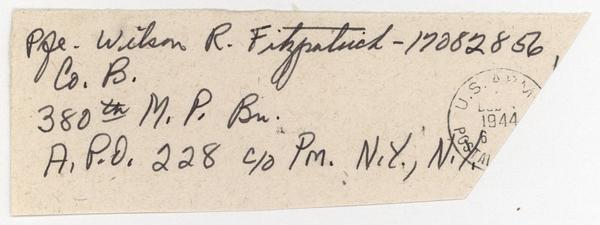 Pfc. Wilson R. Fitzpatrick - 17082856,
Co. B.
380th M. P. Bn.
A. P. O. 228 c/o Pm. N.Y., N.Y.
U. S. ARM
1944
6
POS